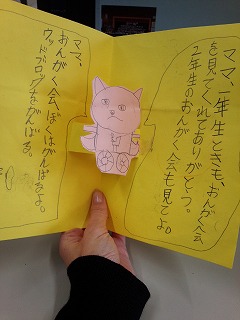 ママ、一年生ときも、おんがく会
を見てくれてありがとう。
2年生のおんがく会も見てよ。
ママ、
おんがく会、ぼくはがんばるよ。
ウッドブロックをがんばる。